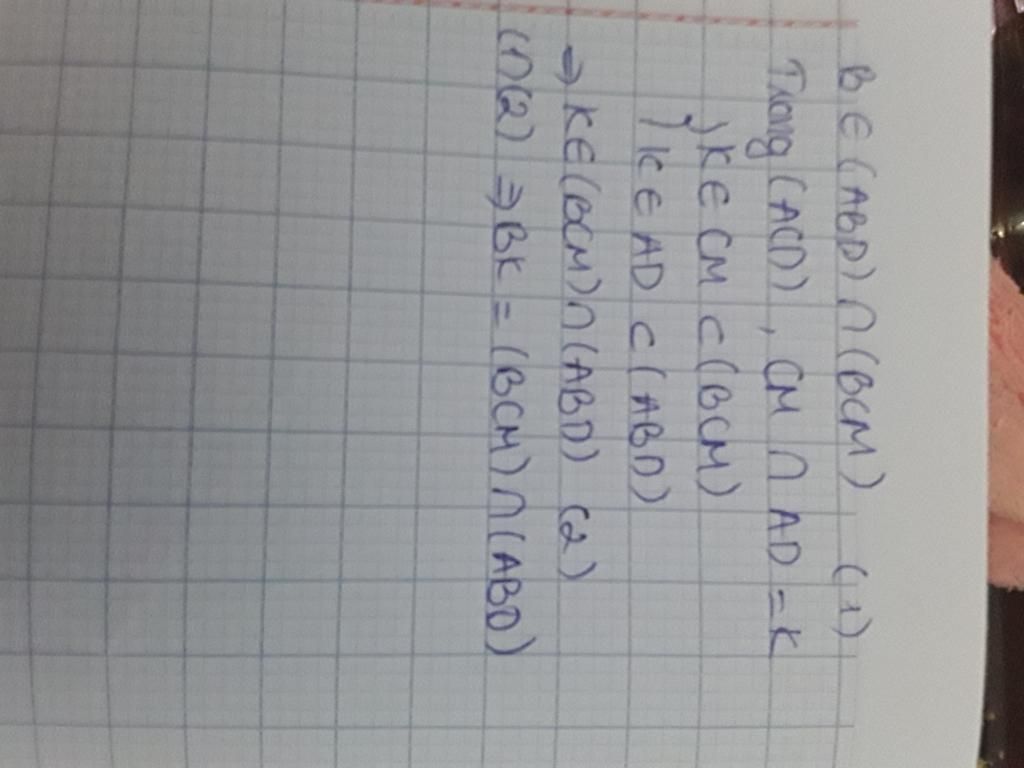 B ∈ (ABD) ∩ (BCM) (1)
Trong (ACD), CM ∩ AD = K
} K ∈ CM ⊂ (BCM)
} K ∈ AD ⊂ (ABD)
⇒ K ∈ (BCM) ∩ (ABD) (2)
(1)(2) ⇒ BK = (BCM) ∩ (ABD)